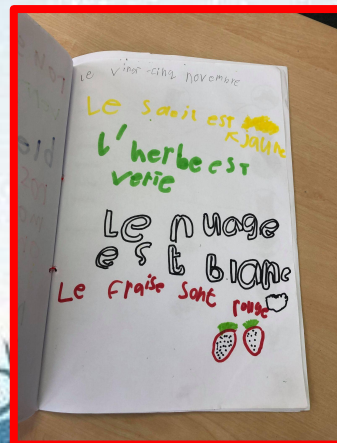 le vingt-cinq novembre
Le soeil est
jaune
L'herbe est
verte
Le nuage
est blanc
Le fraise sont rouge